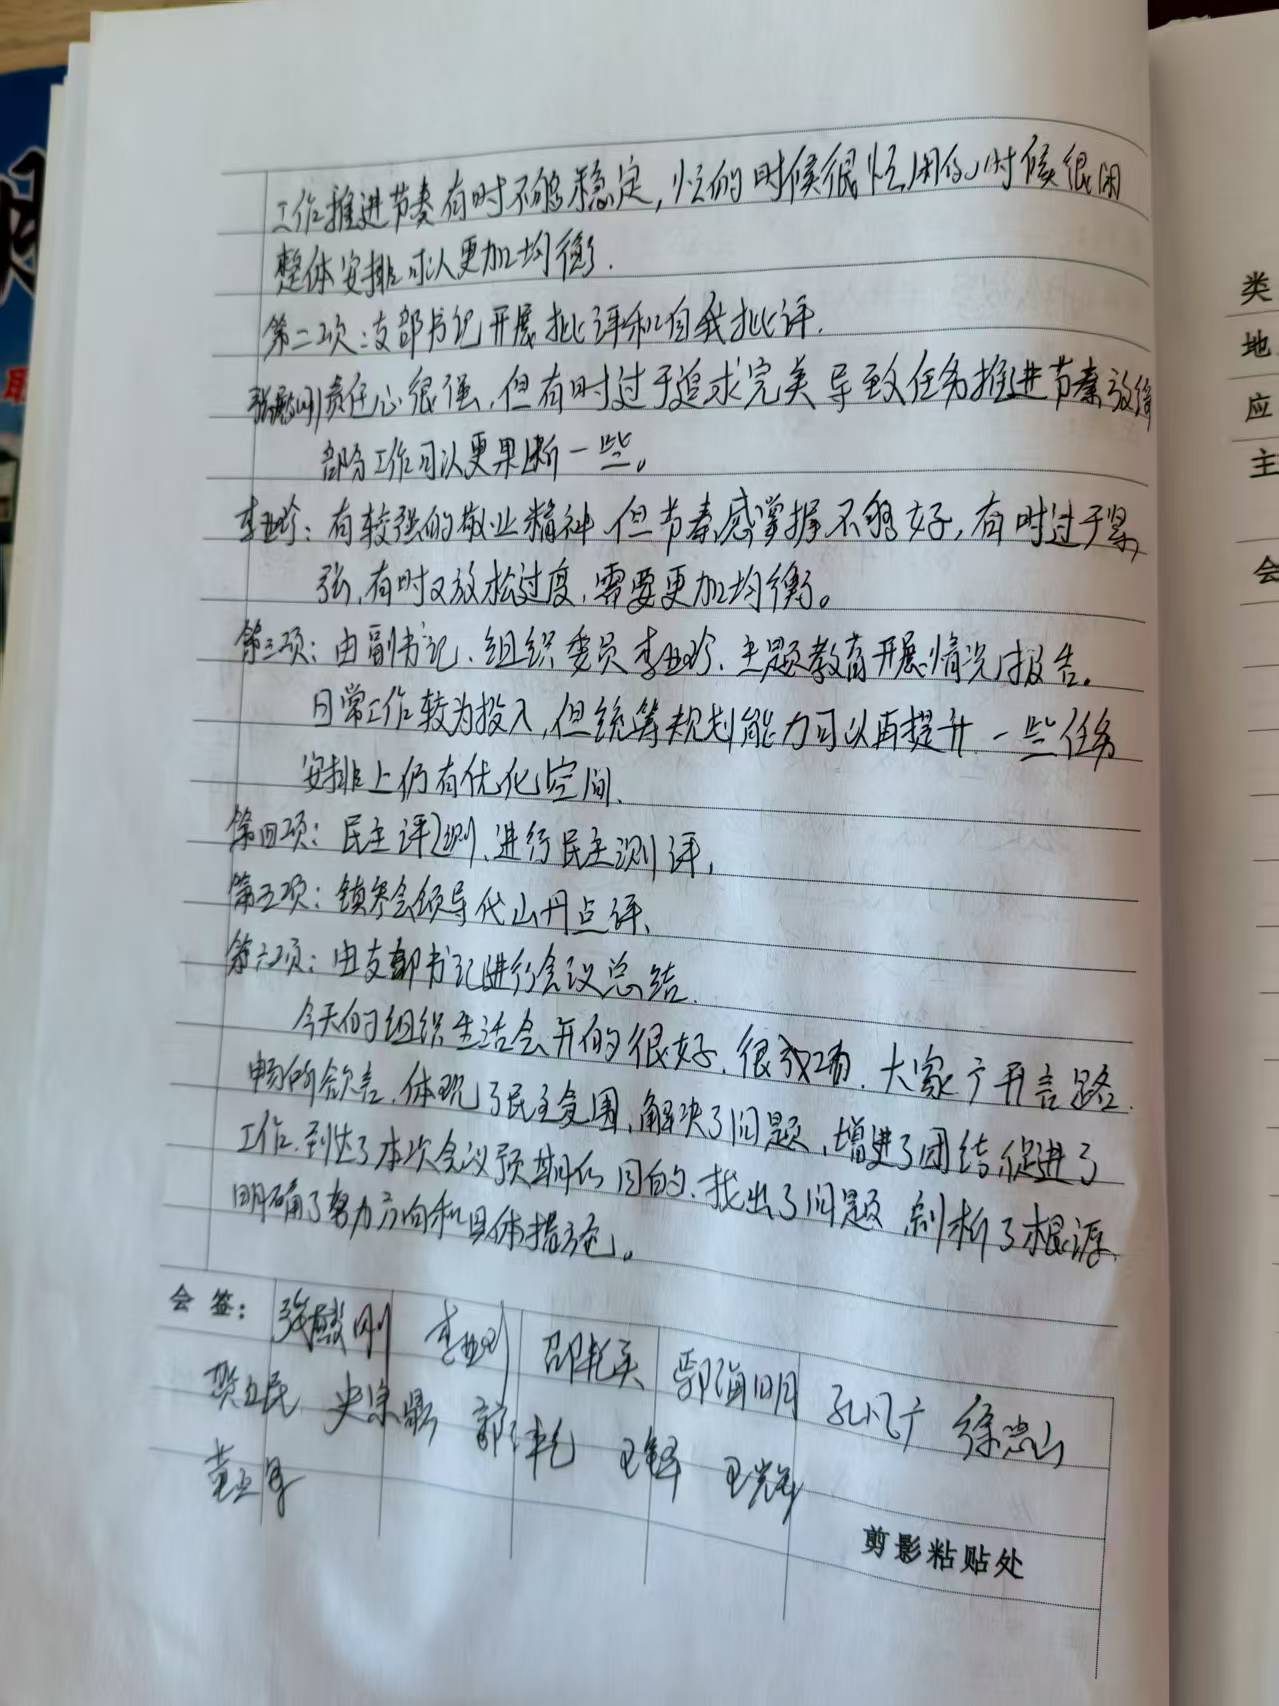 工作推进节奏有时不够稳定,忙的时候很忙闲的时候很闲
整体安排可以更加均衡.
第二项:支部书记开展批评和自我批评.
责任心很强,但有时过于追求完美导致任务推进节奏放缓
部分工作可以更果断一些。
李亚珍:有较强的敬业精神 但节奏感掌握不够好,有时过于紧
张,有时又放松过度,需要更加均衡。
第三项:由副书记、组织委员李亚珍、主题教育开展情况报告。
日常工作较为投入,但统筹规划能力可以再提升 一些任务
安排上仍有优化空间、
第四项:民主评测、进行民主测评,
第五项:镇参会领导代山丹点评、
第六项:由支部书记进行会议总结.
今天的组织生活会开的很好、很成功、大家广开言路.
畅所欲言、体现了民主氛围、解决了问题、增进了团结,促进了
工作、到达了本次会议预期的目的、找出了问题 剖析了根源、
明确了努力方向和具体措施。
会 签: 郭海明 孔凡广 徐忠山
剪影粘贴处
类
地
应
主
会